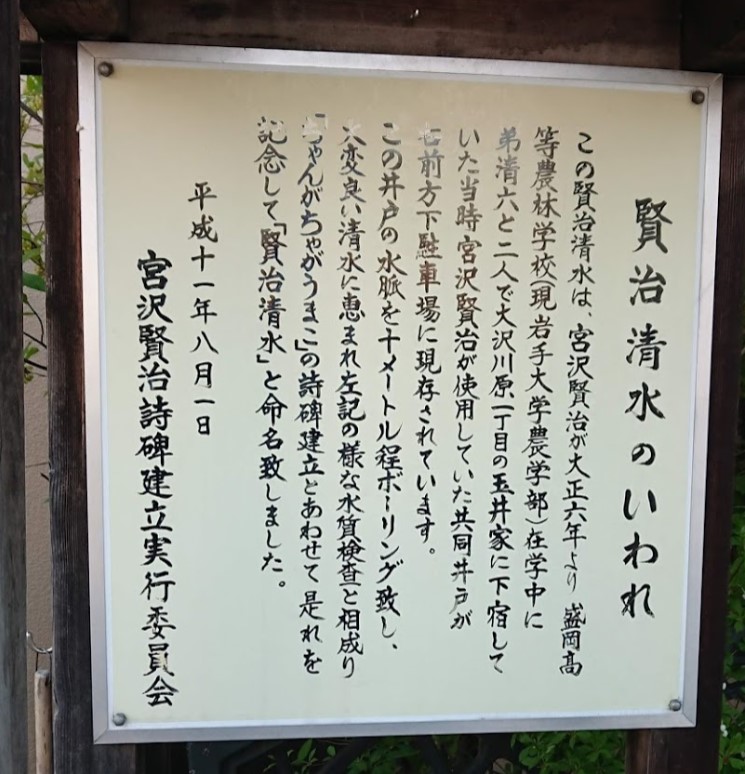 賢治清水のいわれ
この賢治清水は、宮沢賢治が大正六年より 盛岡高
等農林学校(現岩手大学農学部)在学中に
弟清六と二人で大沢川原一丁目の玉井家に下宿して
いた当時宮沢賢治が使用していた共同井戸が
前方下駐車場に現存されています。
この井戸の水脈を十メートル程ボーリング致し、
大変良い清水に恵まれ左記の様な水質検査と相成り
「ちゃんがちゃがうまこ」の詩碑建立とあわせて是れを
記念して「賢治清水」と命名致しました。
平成十一年八月一日
宮沢賢治詩碑建立実行委員会